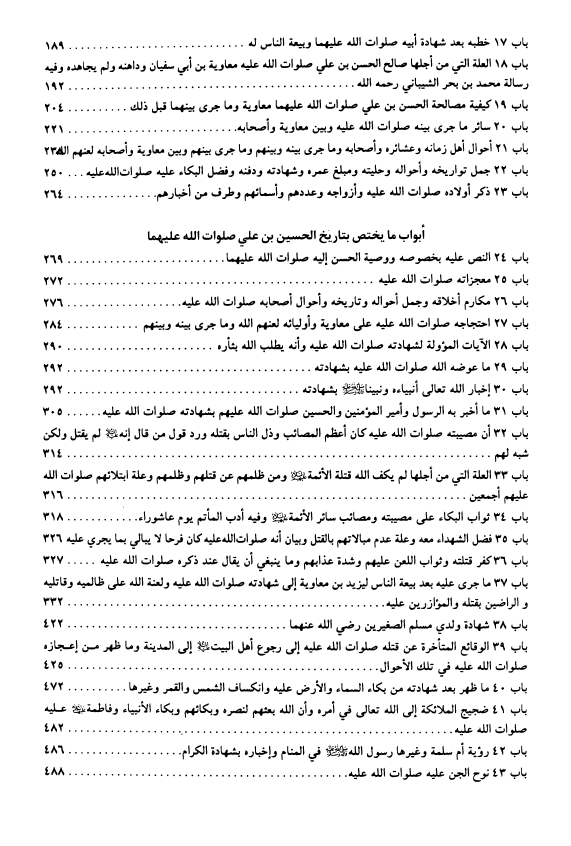 باب ١٧ خطبه بعد شهادة أبيه صلوات الله عليهما وبيعة الناس له .............................. ١٨٩
باب ١٨ العلة التي من أجلها صالح الحسن بن علي صلوات الله عليه معاوية بن أبي سفيان وداهنه ولم يجاهده وفيه
رسالة محمد بن بحر الشيباني رحمه الله .............................................. ١٩٢
باب ١٩ كيفية مصالحة الحسن بن علي صلوات الله عليهما معاوية وما جرى بينهما قبل ذلك .......... ٢٠٤
باب ٢٠ سائر ما جرى بينه صلوات الله عليه وبين معاوية وأصحابه .............................. ٢٢١
باب ٢١ أحوال أهل زمانه وعشائره وأصحابه وما جرى بينه وبينهم وما جرى بينهم وبين معاوية وأصحابه لعنهم الله ٢٣٤
باب ٢٢ جمل تواريخه وأحواله وحليته ومبلغ عمره وشهادته ودفنه وفضل البكاء عليه صلوات الله عليه ... ٢٥٠
باب ٢٣ ذكر أولاده صلوات الله عليه وأزواجه وعددهم وأسمائهم وطرف من أخبارهم ............... ٢٦٤
أبواب ما يختص بتاريخ الحسين بن علي صلوات الله عليهما
باب ٢٤ النص عليه بخصوصه ووصية الحسن إليه صلوات الله عليهما .............................. ٢٦٩
باب ٢٥ معجزاته صلوات الله عليه .............................................. ٢٧٢
باب ٢٦ مكارم أخلاقه وجمل أحواله وتاريخه وأحوال أصحابه صلوات الله عليه .................... ٢٧٦
باب ٢٧ احتجاجه صلوات الله عليه على معاوية وأوليائه لعنهم الله وما جرى بينه وبينهم ............ ٢٨٤
باب ٢٨ الآيات المؤولة لشهادته صلوات الله عليه وأنه يطلب الله بثأره .................... ٢٩٠
باب ٢٩ ما عوضه الله صلوات الله عليه بشهادته .............................. ٢٩٢
باب ٣٠ إخبار الله تعالى أنبياءه ونبينا ﷺ بشهادته .............................. ٢٩٢
باب ٣١ ما أخبر به الرسول وأمير المؤمنين والحسين صلوات الله عليهم بشهادته صلوات الله عليه ...... ٣٠٥
باب ٣٢ أن مصيبته صلوات الله عليه كان أعظم المصائب وذل الناس بقتله ورد قول من قال إنه ﷺ لم يقتل ولكن
شبه لهم .............................................. ٣١٤
باب ٣٣ العلة التي من أجلها لم يكف الله قتلة الأئمة ﷺ ومن ظلمهم عن قتلهم وظلمهم وعلة ابتلائهم صلوات الله
عليهم أجمعين .............................................. ٣١٦
باب ٣٤ ثواب البكاء على مصيبته ومصائب سائر الأئمة ﷺ وفيه أدب المأتم يوم عاشوراء ............ ٣١٨
باب ٣٥ فضل الشهداء معه وعلة عدم مبالاتهم بالقتل وبيان أنه صلوات الله عليه كان فرحا لا يبالي بما يجري عليه ٣٢٦
باب ٣٦ كفر قتلته وثواب اللعن عليهم وشدة عذابهم وما ينبغي أن يقال عند ذكره صلوات الله عليه ..... ٣٢٧
باب ٣٧ ما جرى عليه بعد بيعة الناس ليزيد بن معاوية إلى شهادته صلوات الله عليه ولعنة الله على ظالميه وقاتليه
و الراضين بقتله والمؤازرين عليه .............................. ٣٣٢
باب ٣٨ شهادة ولدي مسلم الصغيرين رضي الله عنهما .............................. ٤٢٢
باب ٣٩ الوقائع المتأخرة عن قتله صلوات الله عليه إلى رجوع أهل البيت ﷺ إلى المدينة وما ظهر من إعجازه
صلوات الله عليه في تلك الأحوال .............................. ٤٢٥
باب ٤٠ ما ظهر بعد شهادته من بكاء السماء والأرض عليه وانكساف الشمس والقمر وغيرها .......... ٤٧٢
باب ٤١ ضجيج الملائكة إلى الله تعالى في أمره وأن الله بعثهم لنصره وبكائهم وبكاء الأنبياء وفاطمة ﷺ عليه
صلوات الله عليه .............................................. ٤٨٢
باب ٤٢ رؤية أم سلمة وغيرها رسول الله ﷺ في المنام وإخباره بشهادة الكرام .................... ٤٨٦
باب ٤٣ نوح الجن عليه صلوات الله عليه .............................. ٤٨٨